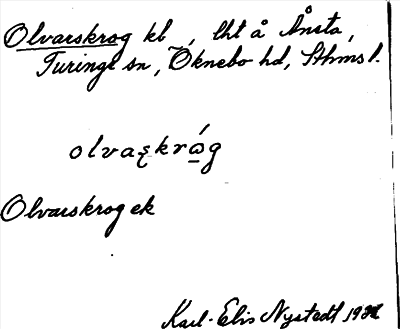 Olvarskrog kb ~, lht å Ånsta,
Turinge sn, Öknebo hd, Sthms l.
olvaʂkrώg
Olvarskrog ek
Karl-Elis Nystedt